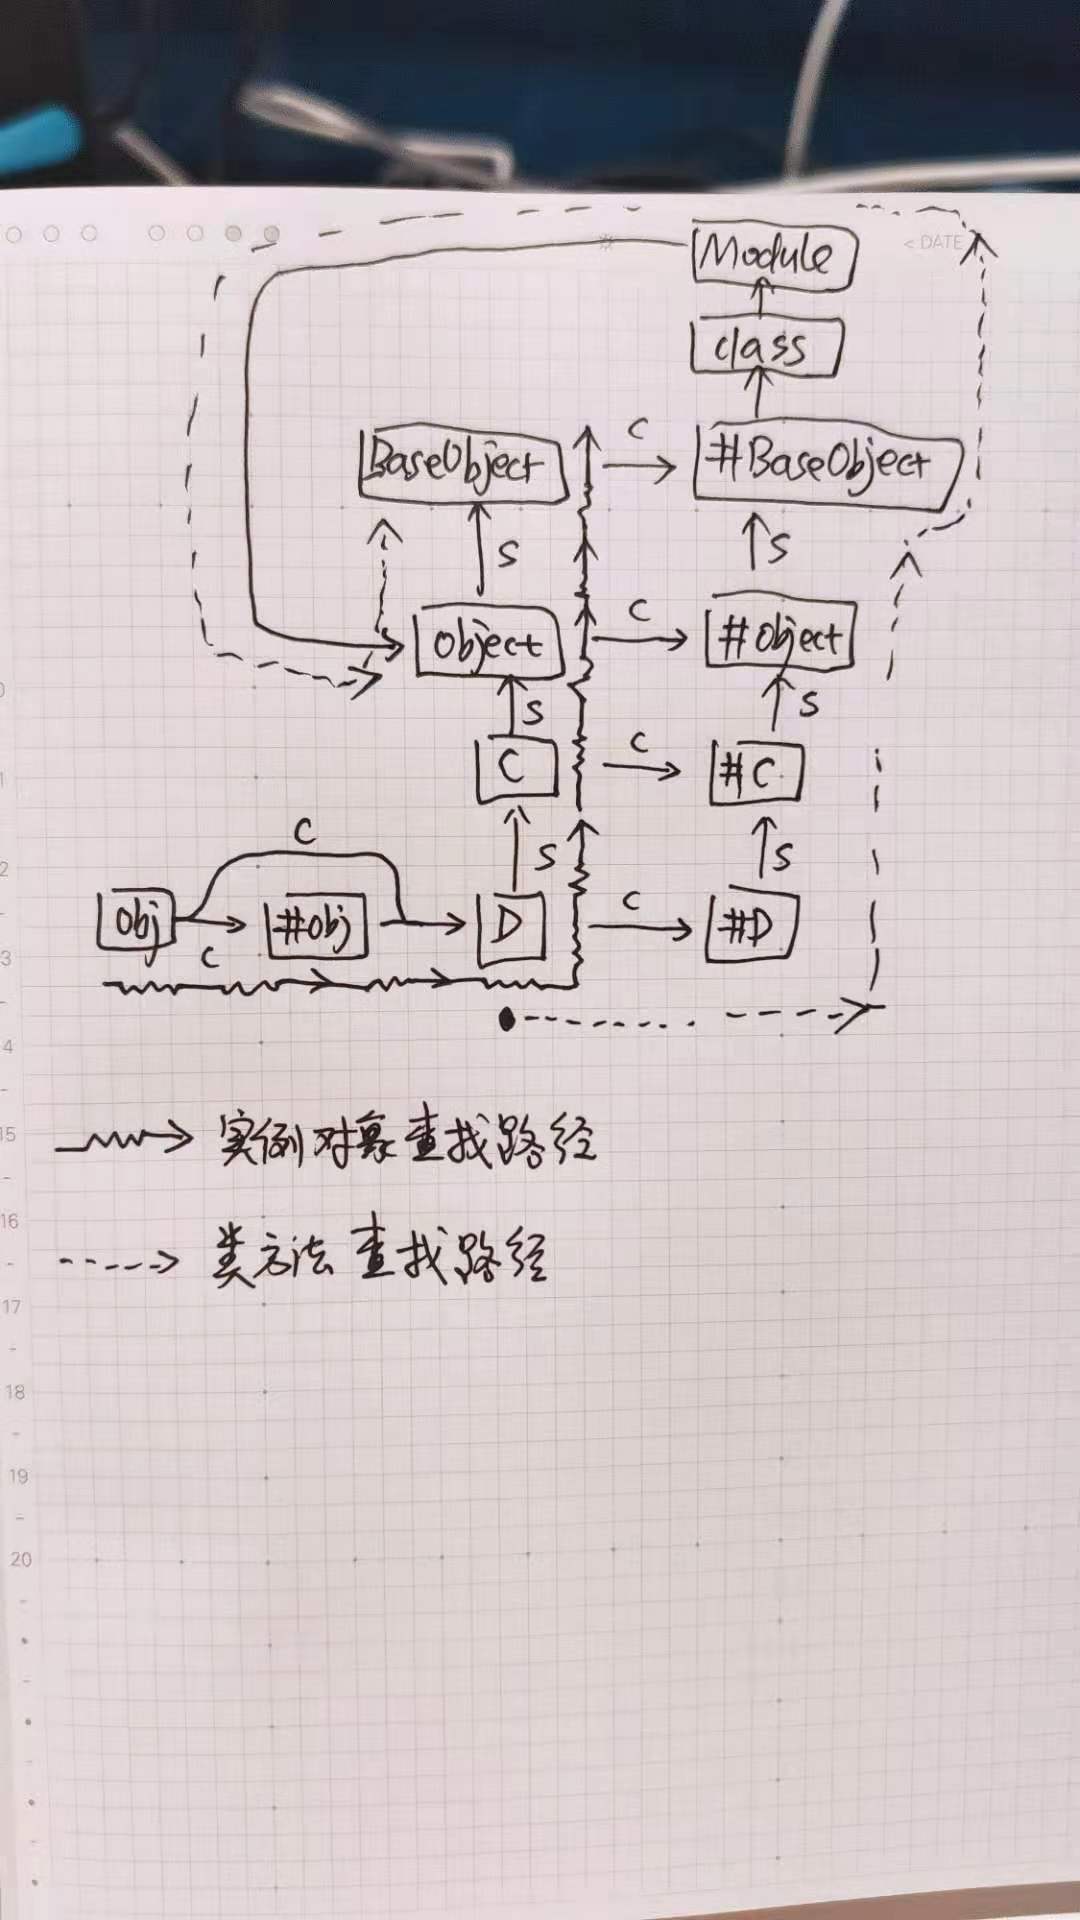 < DATE
Module
class
BaseObject
C
#BaseObject
S
S
Object
C
#Object
S
S
C
C
#C
C
S
S
Obj
#Obj
D
C
#D
C
实例对象查找路径
类方法查找路径
0
1
2
3
4
15
16
17
18
19
20